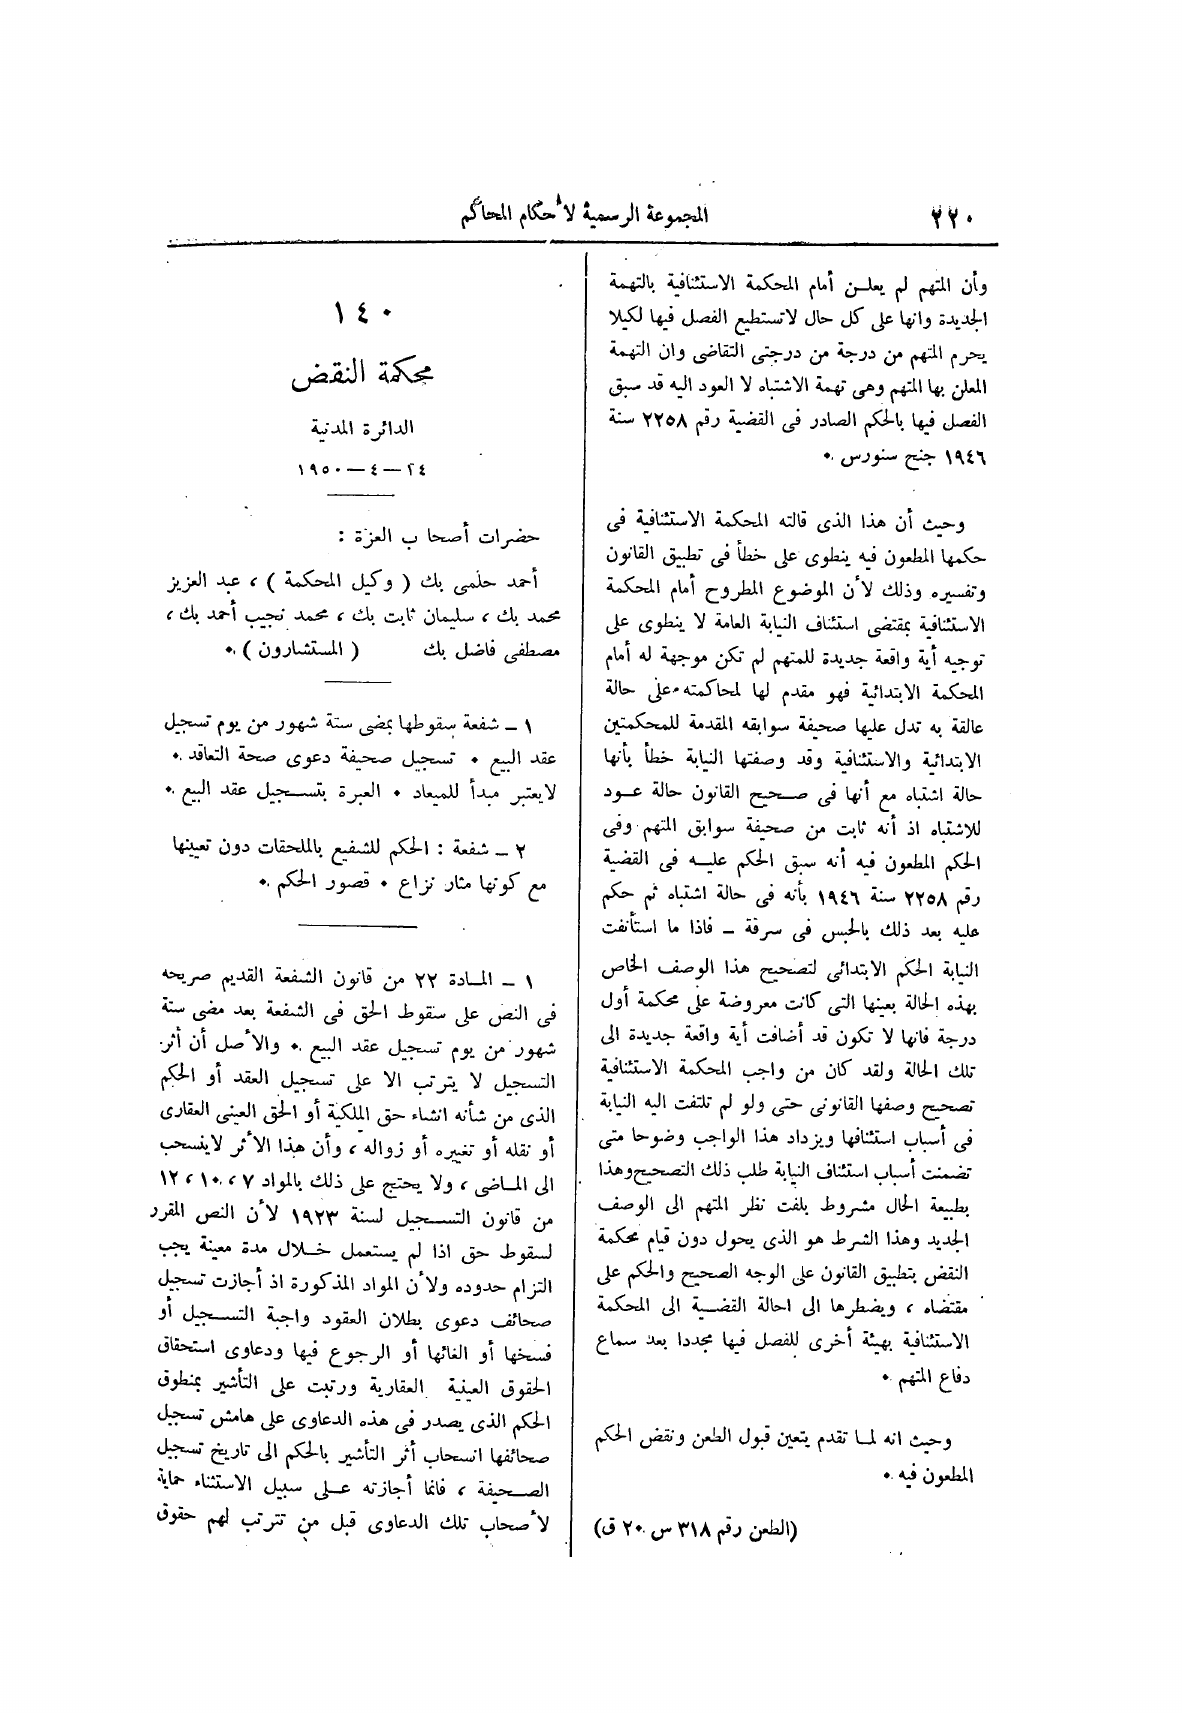 ٢٢٠
المجموعة الرسمية لأحكام المحاكم
وأن المتهم لم يعلـن أمام المحكمة الاستئنافية بالتهمة
الجديدة وانها على كل حال لاتستطيع الفصل فيها لكيلا
يحرم المتهم من درجة من درجتى التقاضى وان التهمة
المعلن بها المتهم وهى تهمة الاشتباه لا العود اليه قد سبق
الفصل فيها بالحكم الصادر فى القضية رقم ٢٢٥٨ سنة
١٩٤٦ جنح سنورس .
وحيث أن هذا الذى قالته المحكمة الاستئنافية فى
حكمها المطعون فيه ينطوى على خطأ فى تطبيق القانون
وتفسيره وذلك لأن الموضوع المطروح أمام المحكمة
الاستئنافية بمقتضى استئناف النيابة العامة لا ينطوى على
توجيه أية واقعة جديدة للمتهم لم تكن موجهة له أمام
المحكمة الابتدائية فهو مقدم لها لمحاكمته على حالة
عالقة به تدل عليها صحيفة سوابقه المقدمة للمحكمتين
الابتدائية والاستئنافية وقد وصفتها النيابة خطأ بأنها
حالة اشتباه مع أنها فى صـحيح القانون حالة عـود
للاشتباه اذ أنه ثابت من صحيفة سوابق المتهم وفى
الحكم المطعون فيه أنه سبق الحكم عليـه فى القضية
رقم ٢٢٥٨ سنة ١٩٤٦ بأنه فى حالة اشتباه ثم حكم
عليه بعد ذلك بالحبس فى سرقة – فاذا ما استأنفت
النيابة الحكم الابتدائى لتصحيح هذا الوصف الخاص
بهذه الحالة بعينها التى كانت معروضة على محكمة أول
درجة فانها لا تكون قد أضافت أية واقعة جديدة الى
تلك الحالة ولقد كان من واجب المحكمة الاستئنافية
تصحيح وصفها القانونى حتى ولو لم تلتفت اليه النيابة
فى أسباب استئنافها ويزداد هذا الواجب وضوحا متى
تضمنت أسباب استئناف النيابة طلب ذلك التصحيح وهذا
بطبيعة الحال مشروط بلفت نظر المتهم الى الوصف
الجديد وهذا الشرط هو الذى يحول دون قيام محكمة
النقض بتطبيق القانون على الوجه الصحيح والحكم على
مقتضاه ، ويضطرها الى احالة القضـية الى المحكمة
الاستئنافية بهيئة أخرى للفصل فيها مجددا بعد سماع
دفاع المتهم .
وحيث انه لمـا تقدم يتعين قبول الطعن ونقض الحكم
المطعون فيه .
(الطعن رقم ٣١٨ س ٢٠ ق)
١٤٠
محكمة النقض
الدائرة المدنية
٢٤ – ٤ – ١٩٥٠
حضرات أصحاب العزة :
أحمد حلمى بك ( وكيل المحكمة ) ، عبد العزيز
محمد بك ، سليمان ثابت بك ، محمد نجيب أحمد بك ،
مصطفى فاضل بك ( المستشارون ) .
١ – شفعة سقوطها بمضى ستة شهور من يوم تسجيل
عقد البيع . تسجيل صحيفة دعوى صحة التعاقد .
لايعتبر مبدأ للميعاد . العبرة بتسـجيل عقد البيع .
٢ – شفعة : الحكم للشفيع بالملحقات دون تعيينها
مع كونها مثار نزاع . قصور الحكم .
١ – المـادة ٢٢ من قانون الشفعة القديم صريحه
فى النص على سقوط الحق فى الشفعة بعد مضى ستة
شهور من يوم تسجيل عقد البيع . والأصل أن أثر
التسجيل لا يترتب الا على تسجيل العقد أو الحكم
الذى من شأنه انشاء حق الملكية أو الحق العينى العقارى
أو نقله أو تغييره أو زواله ، وأن هذا الأثر لاينسحب
الى المـاضى ، ولا يحتج على ذلك بالمواد ٧ ، ١٠ ، ١٢
من قانون التسـجيل لسنة ١٩٢٣ لأن النص المقرر
لسقوط حق اذا لم يستعمل خـلال مدة معينة يجب
التزام حدوده ولأن المواد المذكورة اذ أجازت تسجيل
صحائف دعوى بطلان العقود واجبة التسـجيل أو
فسخها أو الغائها أو الرجوع فيها ودعاوى استحقاق
الحقوق العينية العقارية ورتبت على التأشير بمنطوق
الحكم الذى يصدر فى هذه الدعاوى على هامش تسجيل
صحائفها انسحاب أثر التأشير بالحكم الى تاريخ تسجيل
الصـحيفة ، فانما أجازته عـلى سبيل الاستثناء حماية
لأصحاب تلك الدعاوى قبل من تترتب لهم حقوق